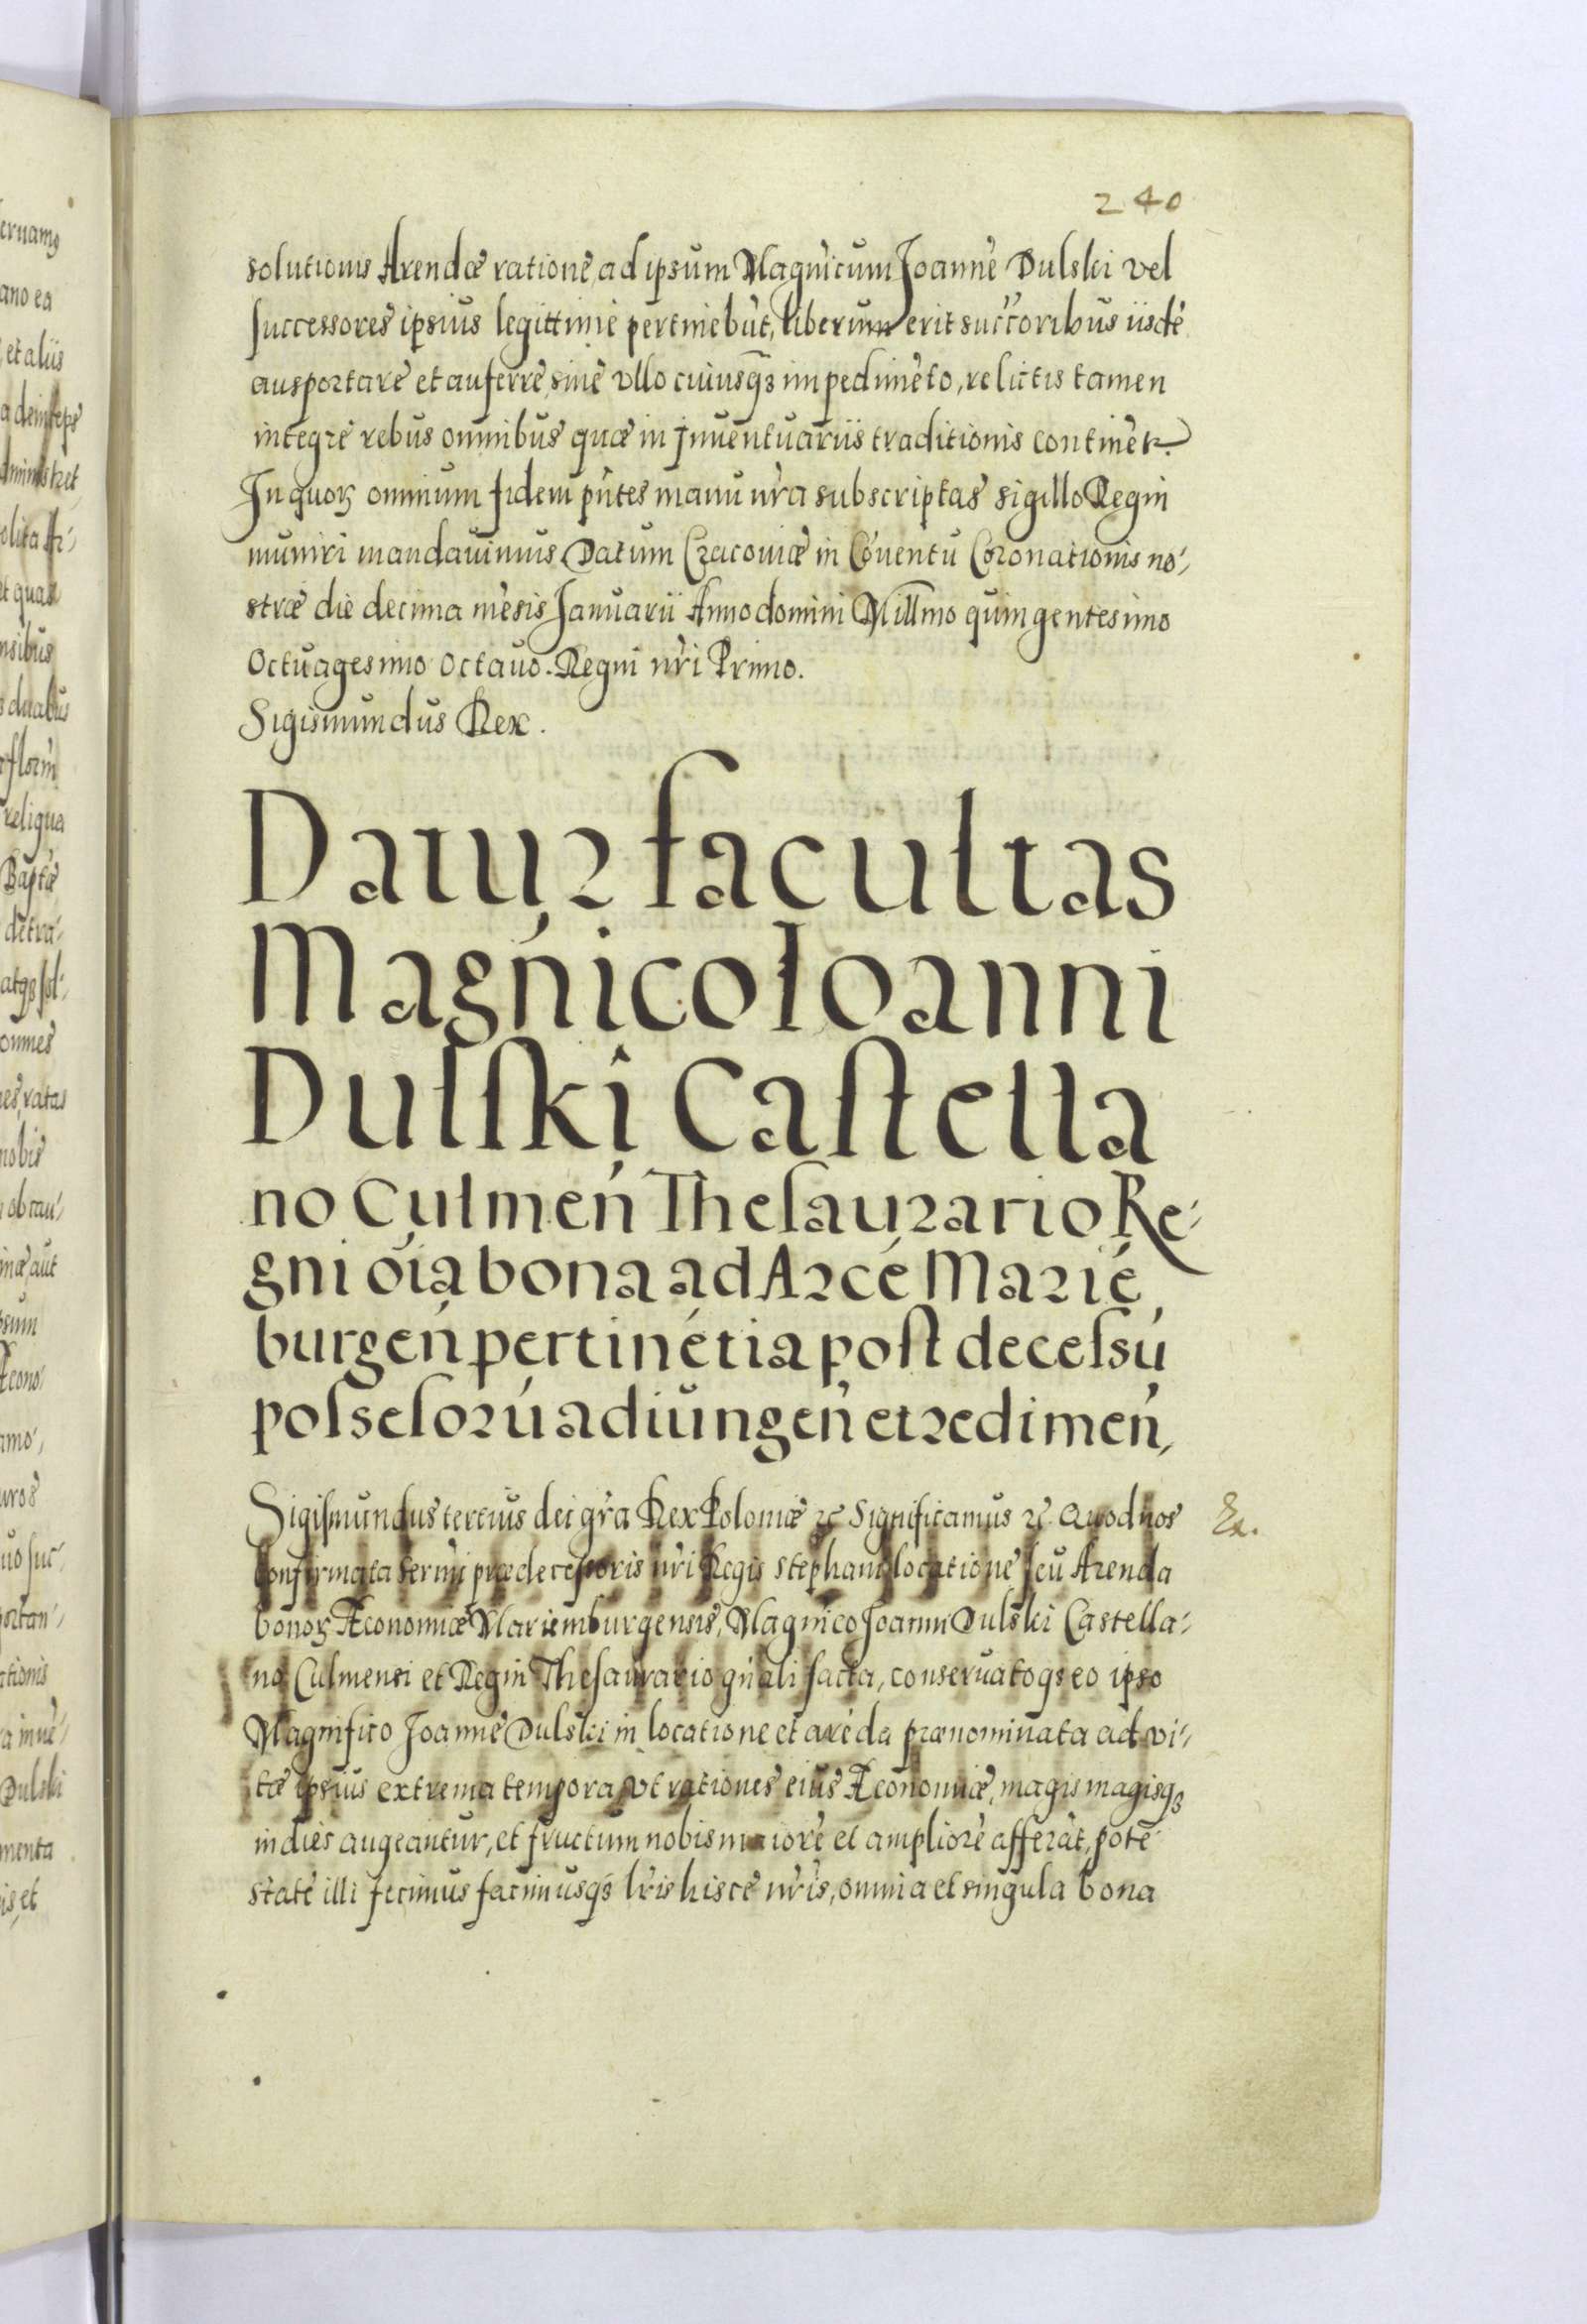 240
solutionis Arendæ ratione, ad ipsum Magnicum Joannē Dulski vel
successores ipsius legittimē pertinebūt, liberum erit succ͞oribus iisdē
ausportarē et auferre, sinē vllo cuiusqȝ impedimēto, relictis tamen
integrē rebus omnibus quæ in Jnuentuariis traditionis continēt͛.
Jn quoꝝ omnium fidem pn͞tes manu nr͞a subscriptas sigillo Regni
muniri mandauimus Datum Cracouiæ in Cōuentu Coronationis no-
stræ diē decima mēsis Januarii Anno domini Mill͞mo quingentesimo
Octuagesimo octauo. Regni nr͞i Primo.
Sigismundus Rex.
Datur facultas
Magn͛ico Ioanni
Dulſki Caſtella
no Culmen͛ Theſaurario Re-
gni o͞ia bona ad Arcē Mariē
burgen͛ pertinētia poſt deceſsū
poſseſorū adiungen͛ et redimen͛,
Sigiſmundus tertius dei gr͞a Rex Poloniæ ꝛc Significamus ꝛc. Quod nos
Confirmata ser͞mi prædecessoris nr͞i Regis Stephani locationē ſeu Arenda
bonoꝝ Æconomiæ Mariemburgensis, Magnico Joanni Dulski Castella-
no Culmensi et Regni Theſaurario gn͞ali facta, conseruatoqȝ eo ipso
Magnifico Joannē Dulski in locatione et arēda prænominata ad vi-
tæ ipsius extrema tempora, vt rationes eius Æconomiæ, magis magisqȝ
in dies augeantur, et fructum nobis maiorē et ampliorē afferāt, potē
statē illi fecimus facimusqȝ lr͞is hisce nr͞is, omnia et singula bona
Ex.